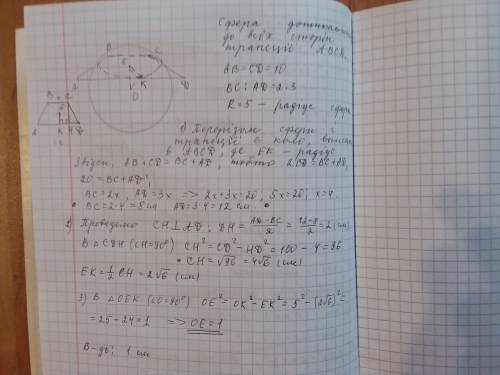 Сфера дотикається
до всіх сторін
трапеції ABCD.
AB=CD=10
BC:AD=2:3
R=5 - радіус сфери
1) Перерізом сфери і
трапеції є коло, вписане
в ABCD, де EK - радіус
Звідси, AB+CD=BC+AD, тобто 2CD=BC+AD,
20=BC+AD;
BC=2x, AD=3x => 2x+3x=20; 5x=20; x=4.
BC=2·4=8см AD=3·4=12см.
2) Проведемо CH⊥AD; DH = (AD-BC)/2 = (12-8)/2 = 2(см)
В △CDH (∠H=90°) CH²=CD²-HD²=100-4=96
CH=√96=4√6 (см)
EK=1/2 CH=2√6 (см)
3) В △OEK (∠O=90°) OE²=OK²-EK²=5²-(2√6)²=
=25-24=1 => OE=1
В-дь: 1 см